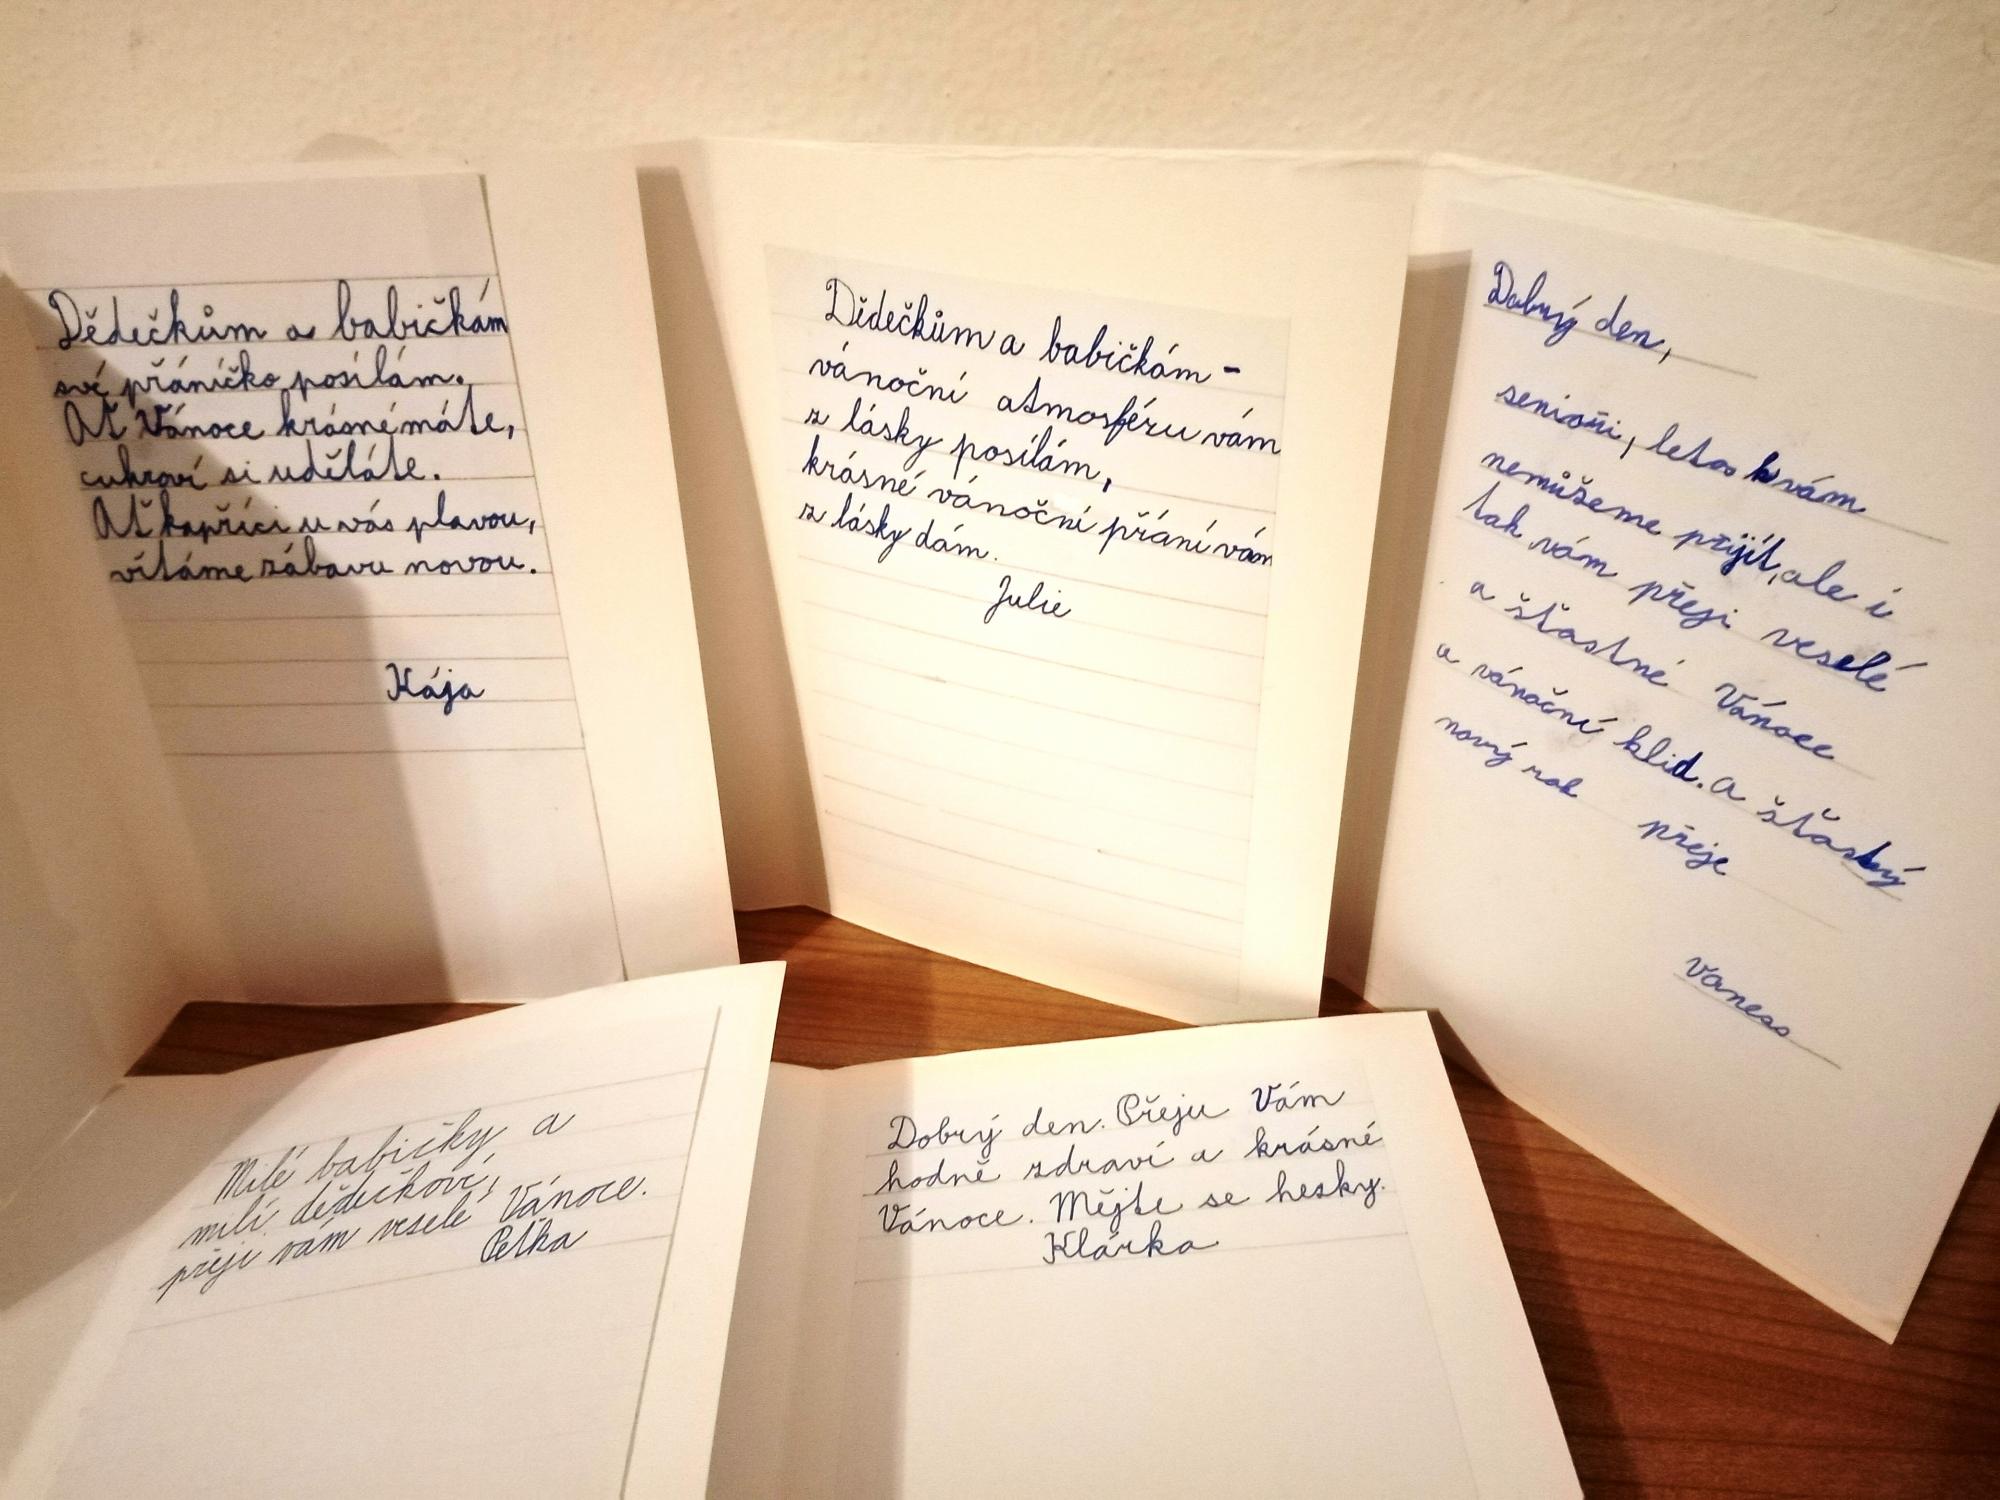 Dědečkům a babičkám
své přáníčko posílám.
Ať Vánoce krásné máte,
cukroví si uděláte.
Ať kapříci u vás plavou,
vítáme zábavu novou.
Kája
Dědečkům a babičkám -
vánoční atmosféru vám
z lásky posílám,
krásné vánoční přání vám
z lásky dám.
Julie
Dobrý den,
senioři, letos k vám
nemůžeme přijít, ale i
tak vám přeji veselé
a šťastné Vánoce
a vánoční klid. a šťasný
nový rok
přeje
Vanesa
Milé babičky a
milí dědečkové,
přeji vám veselé Vánoce.
Peťka
Dobrý den. Přeju Vám
hodně zdraví a krásné
Vánoce. Mějte se hezky.
Klárka